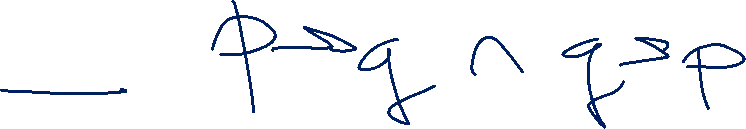 — p → q ∧ q → p